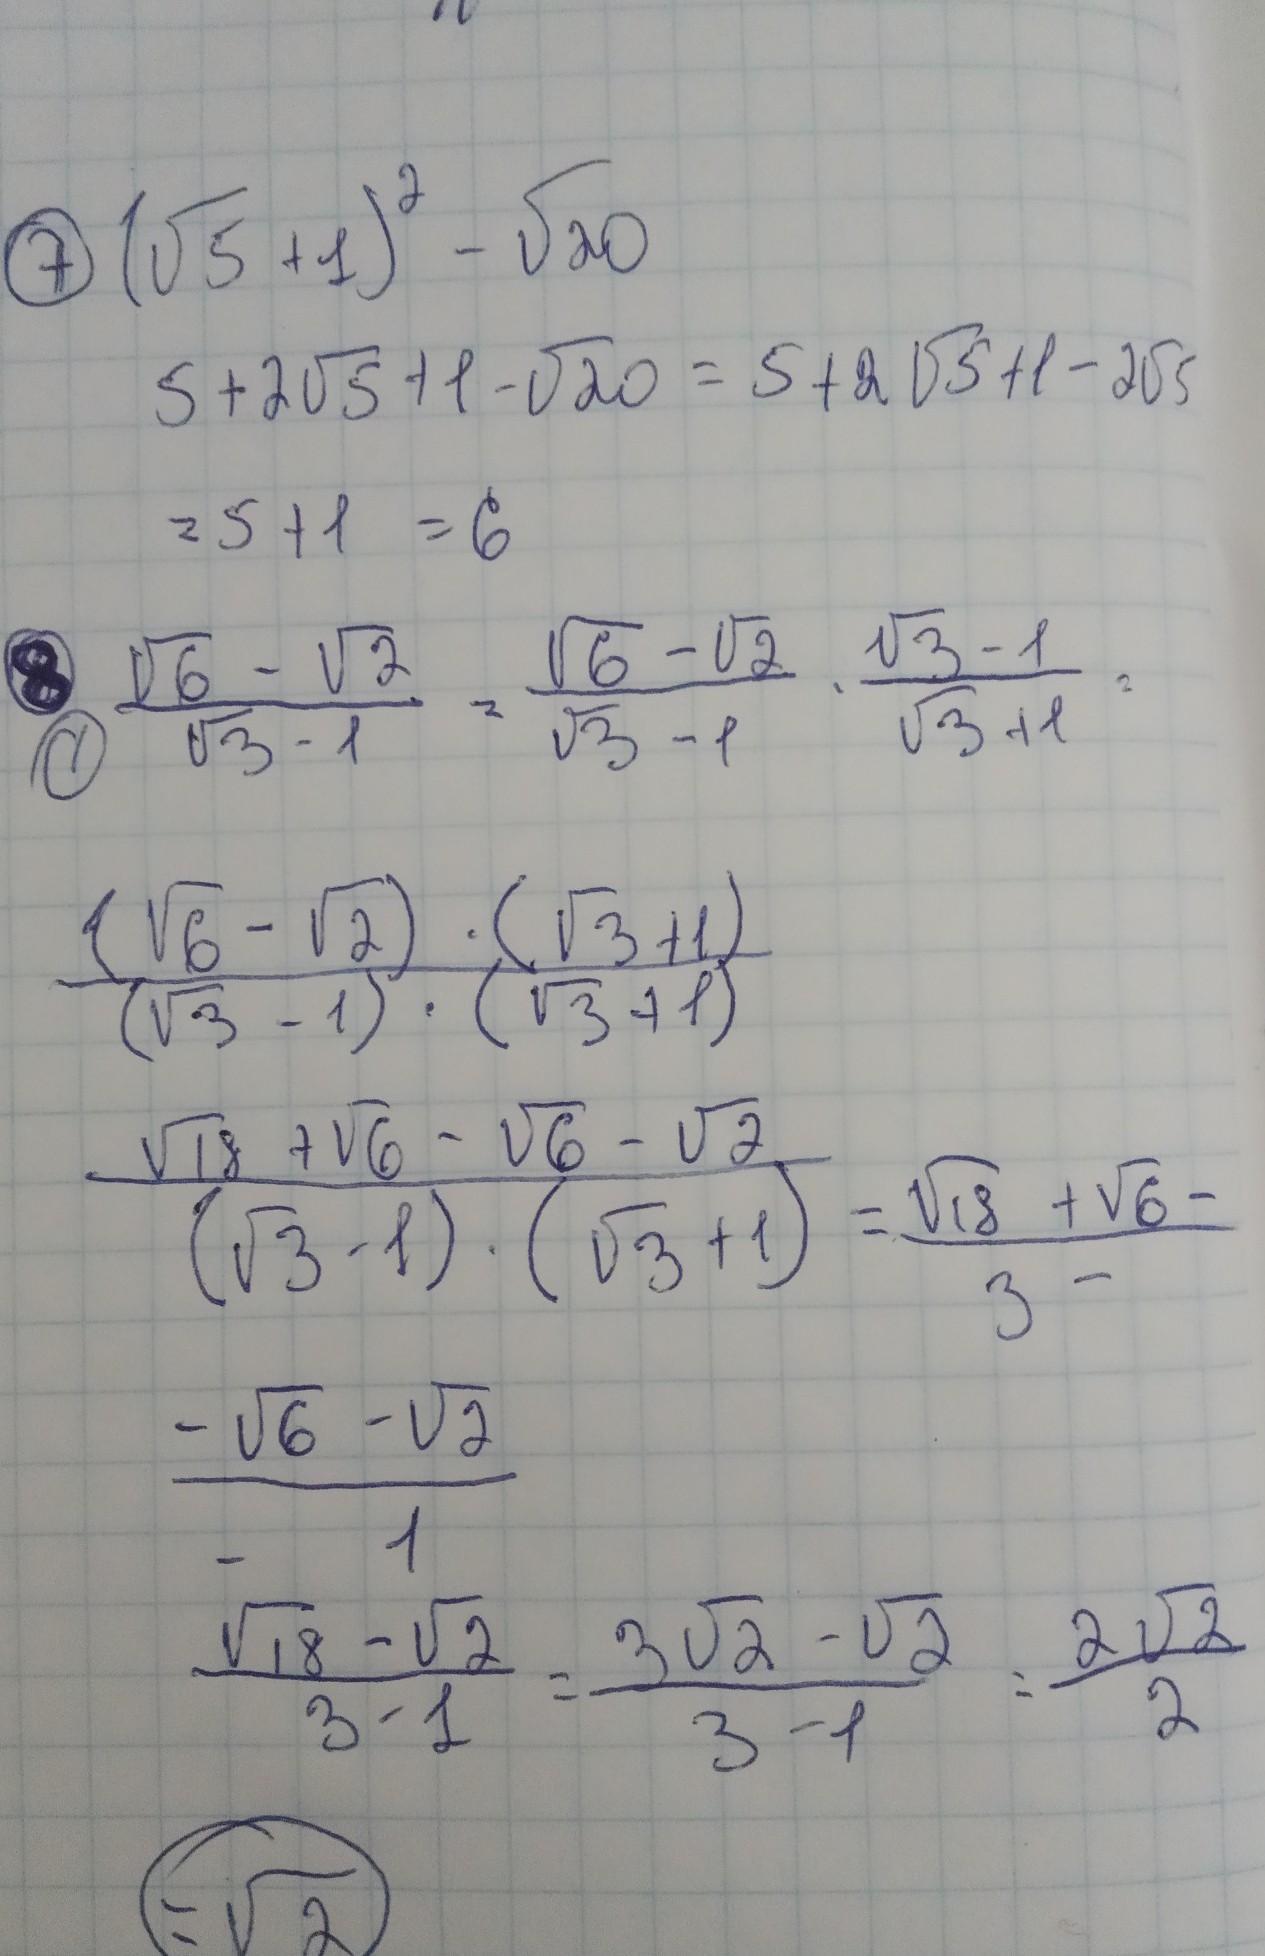 7 (√5 + 1)² - √20
5 + 2√5 + 1 - √20 = 5 + 2√5 + 1 - 2√5
= 5 + 1 = 6
8 (√6 - √2)/(√3 - 1) = (√6 - √2)/(√3 - 1) · (√3 - 1)/(√3 + 1) =
1
((√6 - √2) · (√3 + 1))/((√3 - 1) · (√3 + 1))
(√18 + √6 - √6 - √2)/((√3 - 1) · (√3 + 1)) = (√18 + √6 -)/(3 -)
(- √6 - √2)/(- 1)
(√18 - √2)/(3 - 1) = (3√2 - √2)/(3 - 1) = (2√2)/2
= √2